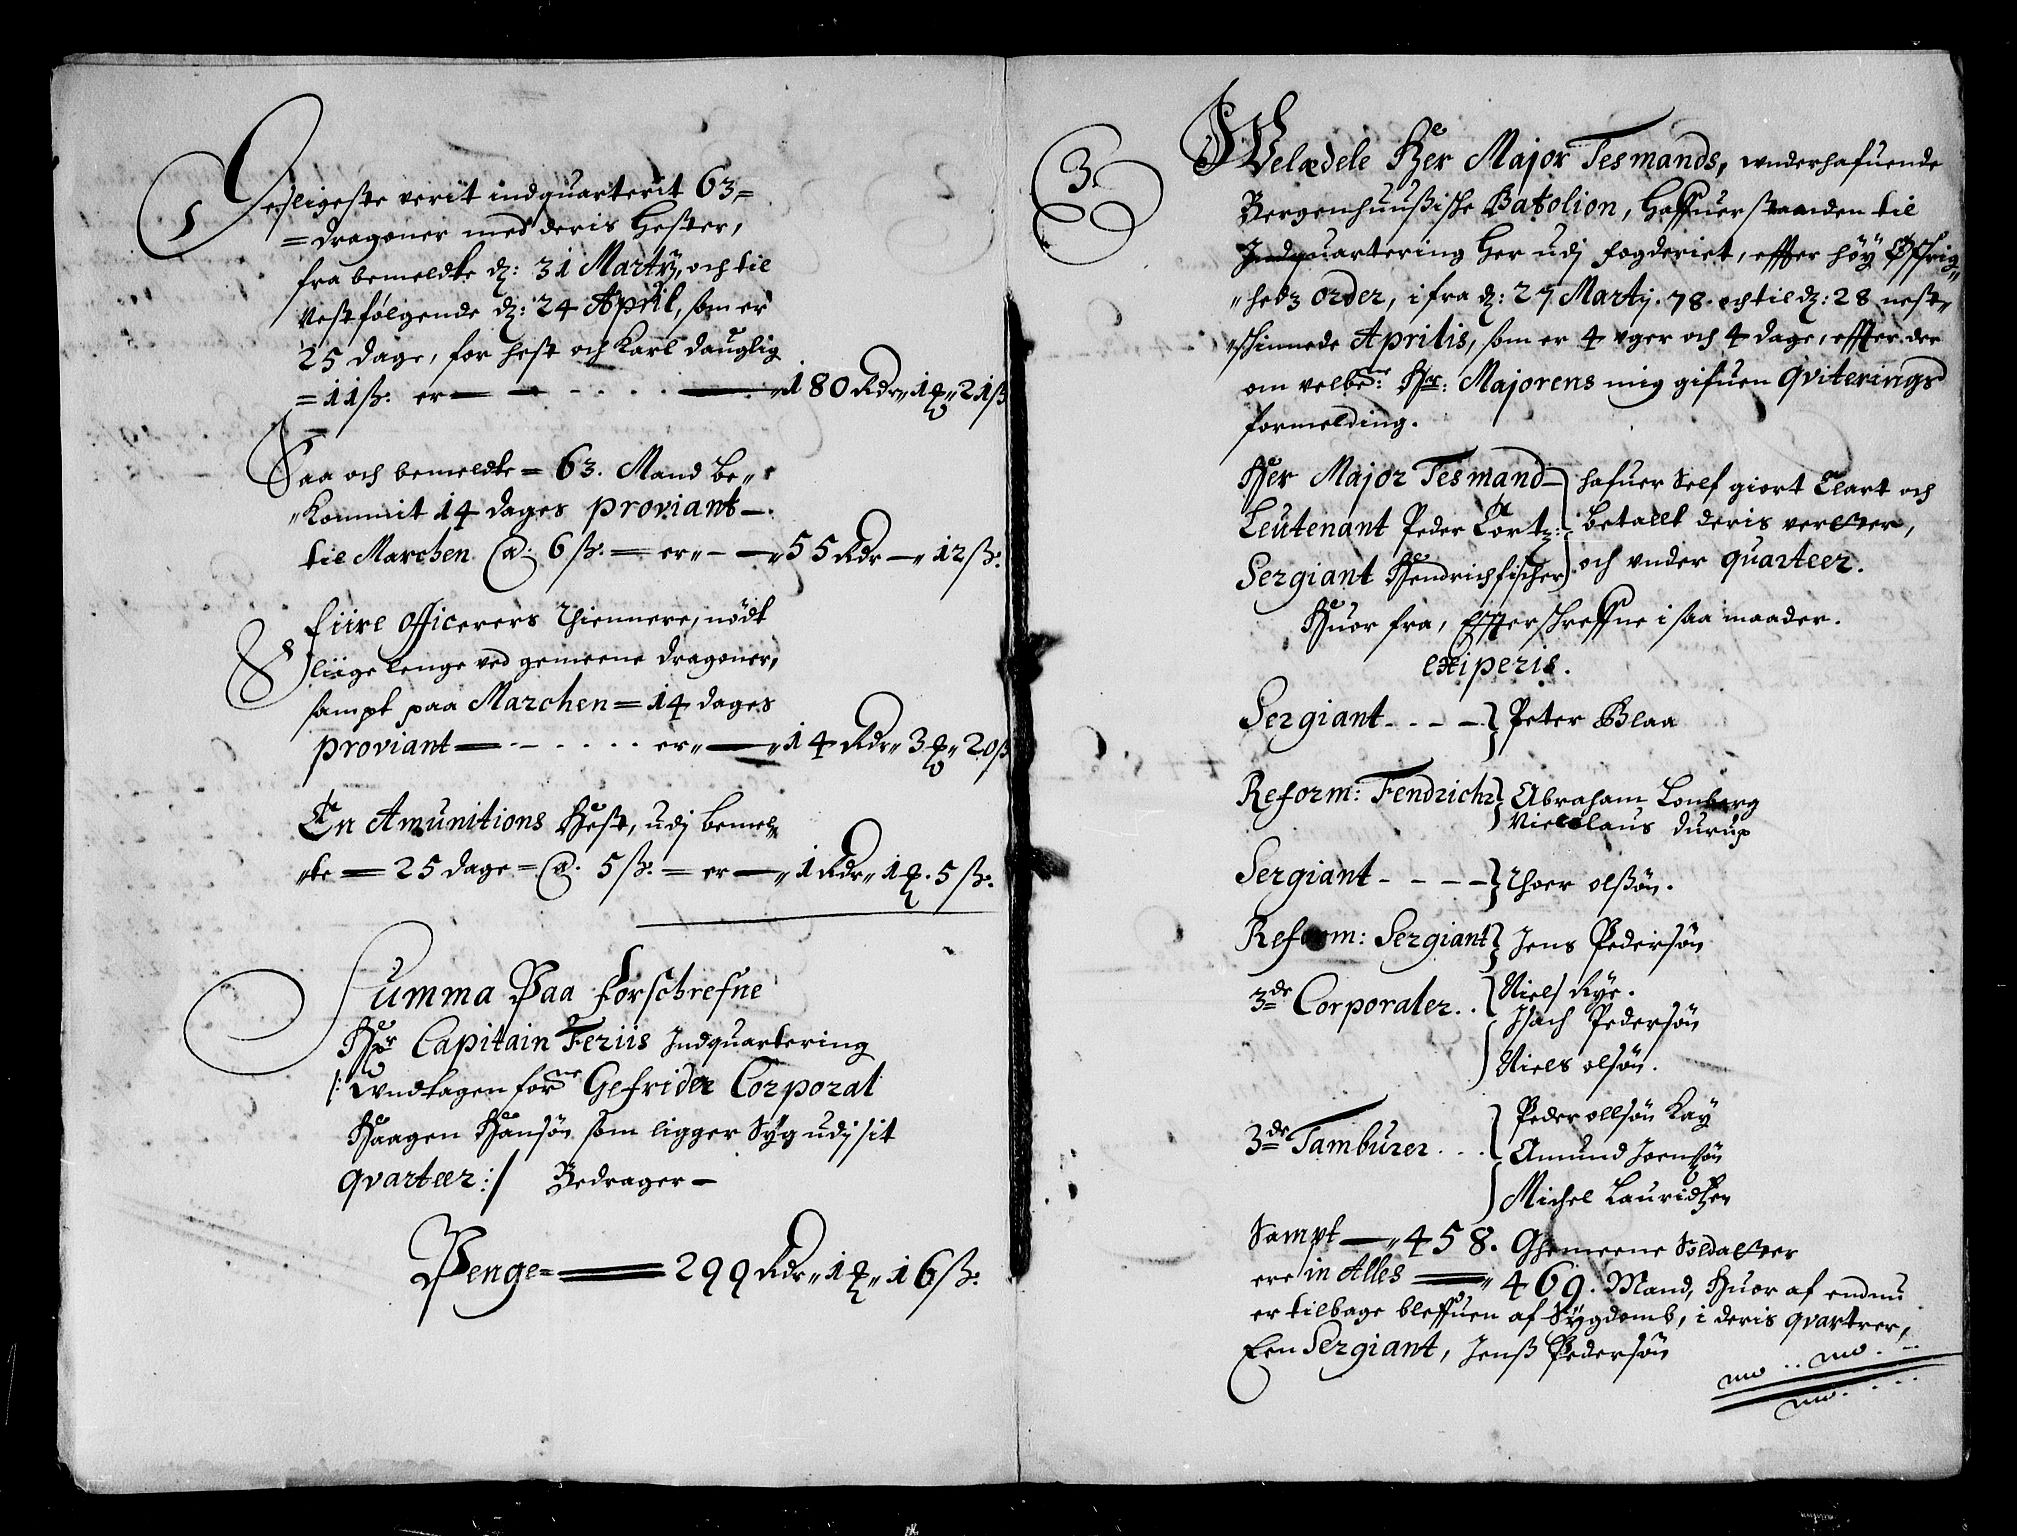 Desligeste verit indquarterit 63=
=dragoner med deris Hester,
fra bemeldte dȝ: 31 Martÿ, och til
nestfølgende dȝ: 24 April, som er
25 dage, for hest och Karl dauglig
=11ß: er — — „180 Rdr„ 1 ℔„ 21ß
Saa och bemeldte = 63. Mand be„
„Kommit 14 dages proviant —
til Marchen @: 6ß: = er„ — „55 Rdr — „12ß:
fiire Officerers Thiennere, nödt
liige lenge ved gemeene dragoner,
sampt paa Marchen = 14 dages
proviant — er„ — „14 Rdr„ 3 ℔„ 20ß
En Amunitions Hest, udj bemel„
„te — 25 dage = @. 5ß: = er — „1 Rdr„ 1 ℔. 5ß:
Summa Paa forschrefne
Hr Capitain Feriis Indquartering
/: undtagen forne Gefrider Corporal
Haagen Hansön som ligger Syg udj sit
qvarteer :/ Bedrager —
Penge = 299 Rdr„ 1 ℔„ 16ß:
3.
Welædele Her Major Tesmands, underhafuende
Bergenhuußische Batolion, Haffuer standen til
Indquartering her udj fogderiet, effter höy Øffrig„
„hedz order, ifra dȝ: 27 Martij. 78. och til dȝ: 28 nest„
„schinnede Aprilis, som er 4 uger och 4 dage, effter der
om velbe: Her: Majorens mig gifuen Qviterings
formelding.
Her Major Tesmand hafuer Self giort Clart och
Leutenant Peder Cortz: betallt deris verster,
Sergiant Hendrich fischer och under quarteer.
Huor fra, Effterschreffne i saa maader.
exiperis.
Sergiant - - - Peter Blaa
Reform: Fendrichz Abraham Lonberg
Nicolaus Durup
Sergiant - - - - Thoer olßön.
Reform: Sergiant Jens Pedersön
3de Corporaler . . Niels Rye.
Isach Pedersön
Niels olsön.
Peder ollsön Kay
3de Tamburer . . . Amund Joensön
Michel Lauridtzen
Sampt — „458. Ghemeene Soldatter
ere in Alles — „469. Mand, Huor af endnu
er tilbage bleffuen af Sygdomb, i deris qvartrer,
Een Sergiant, Jenß Pedersön